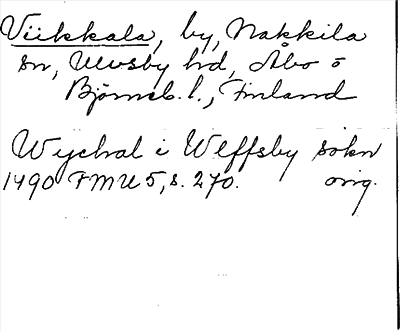 Viikkala, by, Nakkila
sn, Ulvsby hd, Åbo o
Björneb. l., Finland
Wychal i Wlffsby sokn
1490 FMU 5, s. 270. orig.